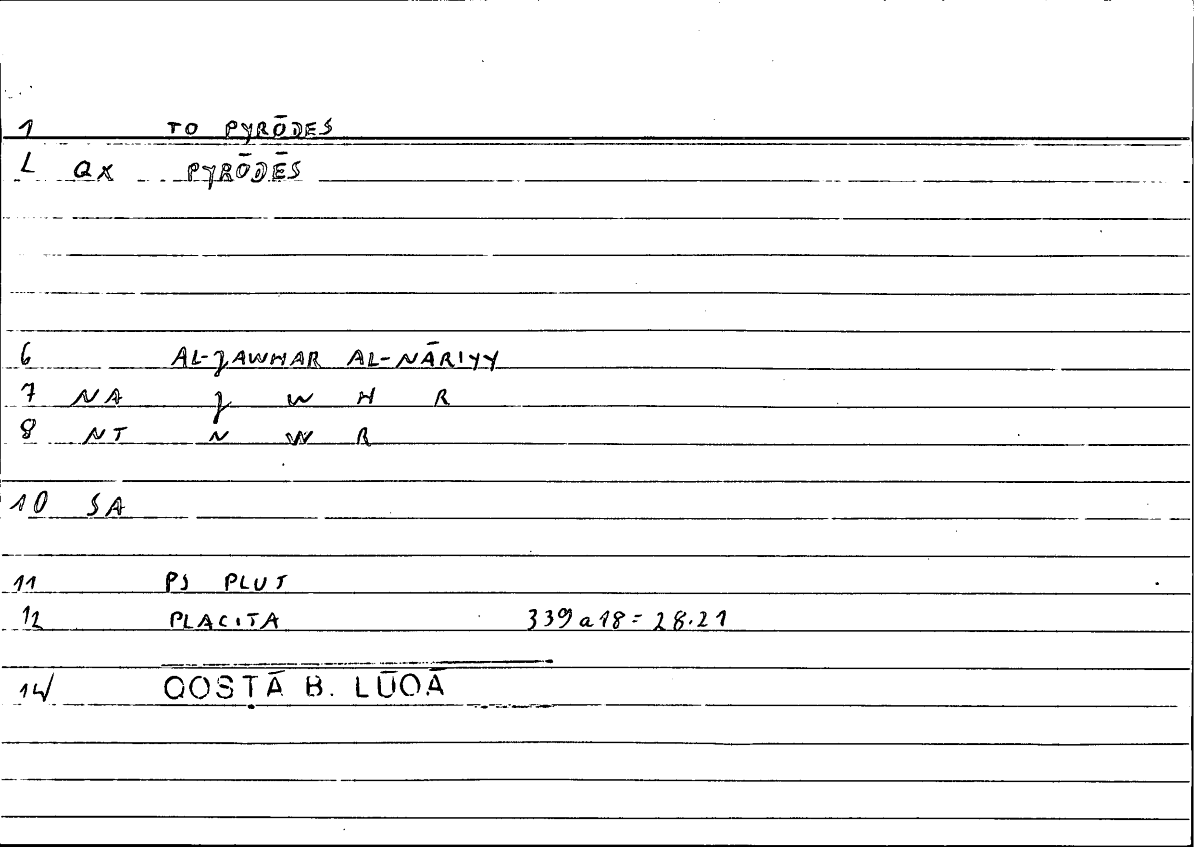 1 TO PYRŌDES
L QX PYRŌDĒS
6 AL-JAWHAR AL-NĀRIYY
7 NA J W H R
8 NT N W R
10 SA
11 PS PLUT
12 PLACITA 339a18 = 28.21
14 QOSṬĀ B. LŪQĀ